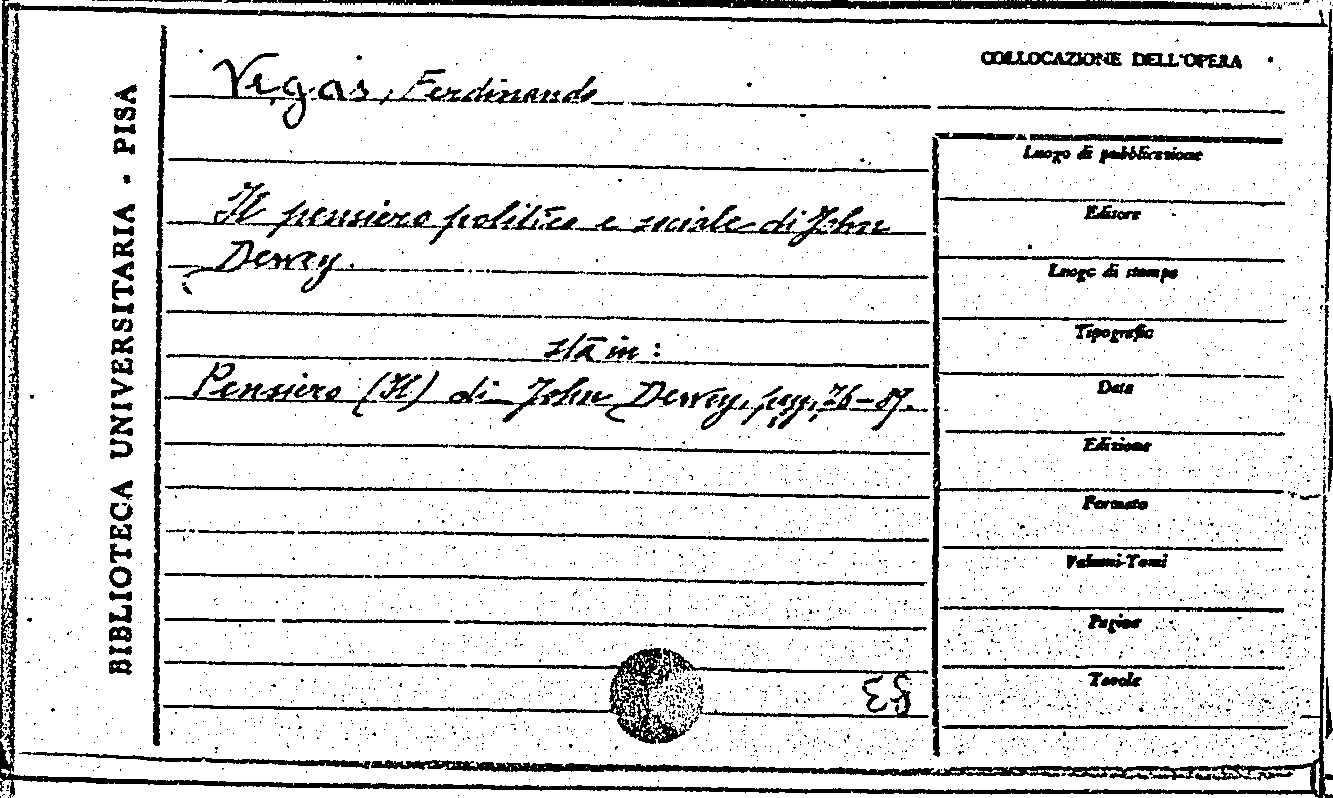 BIBLIOTECA UNIVERSITARIA - PISA
Vegas, Ferdinando
Il pensiero politico e sociale di John
Dewey.
sta in:
Pensiero (Il) di John Dewey, pgg. 76-87.
COLLOCAZIONE DELL'OPERA
Luogo di pubblicazione
Editore
Luogo di stampa
Tipografia
Data
Edizione
Formato
Volumi-Tomi
Pagine
Tavole